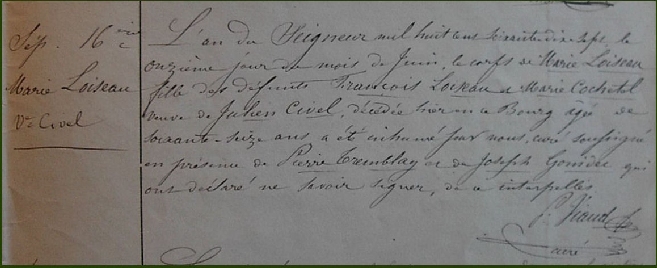 Sép. 16ième
Marie Loiseau
Ve Civel
L'an du Seigneur mil huit cent soixante dix-sept, le
onzième jour du mois de Juin, le corps de Marie Loiseau
fille des défunts François Loiseau et Marie Cochetel
veuve de Julien Civel, décédée hier en ce Bourg âgée de
soixante-seize ans a été inhumé par nous, curé soussigné
en présence de Pierre Tremblay et de Joseph qui
ont déclaré ne savoir signer, de ce interpellés
J. Viaud
curé